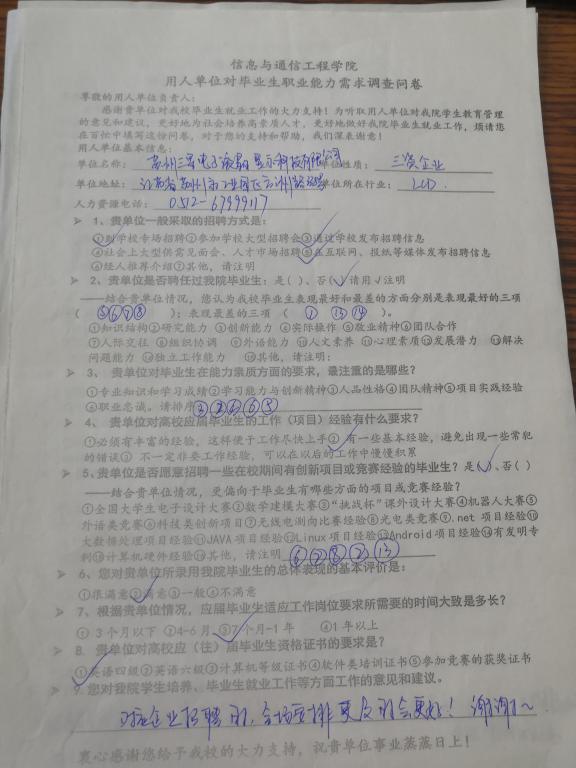 信息与通信工程学院
用人单位对毕业生职业能力需求调查问卷
尊敬的用人单位负责人:
感谢贵单位对我校毕业生就业工作的大力支持!为听取用人单位对我院学生教育管理
的意见和建议,更好地为社会培养高素质人才,更好地做好我院毕业生就业工作,烦请您
在百忙中填写这份问卷,对于您的支持和帮助,我们深表谢意!
用人单位基本信息:
单位名称: 苏州三星电子液晶显示科技有限公司 单位性质: 三资企业
单位地址: 江苏省苏州市工业园区 单位所在行业: LCD.
人力资源电话: 0512-67999117
➢ 1、贵单位一般采取的招聘方式是:
①到学校专场招聘②参加学校大型招聘会③通过学校发布招聘信息
④社会上大型供需见面会、人才市场招聘⑤在互联网、报纸等媒体发布招聘信息
⑥经人推荐介绍⑦其他,请注明
➢ 2、贵单位是否聘任过我院毕业生:是( )、否(√)请用√注明
——结合贵单位情况,您认为我校毕业生表现最好和最差的方面分别是表现最好的三项
( ⑤⑥⑦⑧ );表现最差的三项( ① ⑬ ⑭ )。
①知识结构②研究能力 ③创新能力 ④实际操作 ⑤敬业精神⑥团队合作
⑦人际交往 ⑧组织协调 ⑨外语能力 ⑩人文素养 ⑪心理素质⑫发展潜力 ⑬解决
问题能力 ⑭独立工作能力 ⑮其他,请注明:
➢ 3、贵单位对毕业生在能力素质方面的要求,最注重的是哪些?
①专业知识和学习成绩②学习能力与创新精神③人品性格④团队精神⑤项目实践经验
⑥职业忠诚。请排序
➢ 4、 贵单位对高校应届毕业生的工作(项目)经验有什么要求?
①必须有丰富的经验,这样便于工作尽快上手②有一些基本经验,避免出现一些常犯
的错误③ 不一定非要工作经验,可以在以后的工作中慢慢积累
➢ 5、贵单位是否愿意招聘一些在校期间有创新项目或竞赛经验的毕业生?是(√)、否( )
——结合贵单位情况,更偏向于毕业生有哪些方面的项目或竞赛经验?
①全国大学生电子设计大赛②数学建模大赛③“挑战杯”课外设计大赛④机器人大赛⑤
外语类竞赛⑥科技类创新项目⑦无线电测向比赛经验⑧光电类竞赛⑨.net 项目经验⑩
大数据处理项目经验⑪JAVA项目经验⑫Linux项目经验⑬Android项目经验⑭有发明专
利⑮计算机硬件经验⑯其他,请注明
➢ 6、您对贵单位所录用我院毕业生的总体表现的基本评价是:
①很满意②满意③一般④不满意
➢ 7、根据贵单位情况,应届毕业生适应工作岗位要求所需要的时间大致是多长?
① 3个月以下 ②4-6月 ③7个月-1年 ④1年以上
➢ 8、贵单位对高校应(往)届毕业生资格证书的要求是?
①英语四级②英语六级③计算机等级证书④软件类培训证书⑤参加竞赛的获奖证书
➢ 9、您对我院学生培养、毕业生就业工作等方面工作的意见和建议。
对企业招聘时,会场安排更及时会更好!谢谢~
衷心感谢您给予我校的大力支持,祝贵单位事业蒸蒸日上!